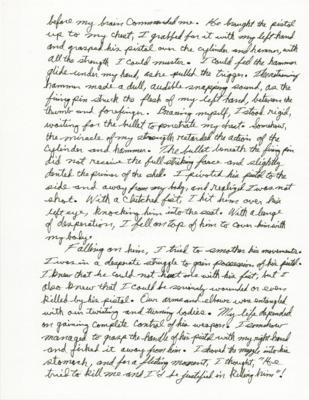 before my brain commanded me. He brought the pistol
up to my chest, I grabbed for it with my left hand
and grasped his pistol over the cylinder and hammer, with
all the strength I could muster. I could feel the hammer
glide under my hand, as he pulled the trigger. The
hammer made a dull, audible snapping sound, as the
firing pin struck the flesh of my left hand, between the
thumb and forefinger. Bracing myself, I stood rigid,
waiting for the bullet to penetrate my chest. Somehow,
the miracle of my strength retarded the action of the
cylinder and hammer. The bullet beneath the firing pin
did not receive the full striking force and slightly
dented the primer of the shell. I pivoted his pistol to the
side and away from my body, and realized I was not
shot. With a clutched fist, I hit him over his
left eye, knocking him into the seat. With a lunge
of desperation, I fell on top of him to cover him with
my body.
Falling on him, I tried to smother his movements.
I was in a desperate struggle to gain possession of his pistol.
I knew that he could not hurt me with his fist, but I
also knew that I could be seriously wounded or even
killed by his pistol. Our arms and elbows were entangled
with our twisting and turning bodies. My life depended
on gaining complete control of his weapon. I somehow
managed to grasp the handle of his pistol with my right hand
and jerked it away from him. I shoved the muzzle into his
stomach, and for a fleeting moment, I thought, "He
tried to kill me and I'd be justified in killing him"!